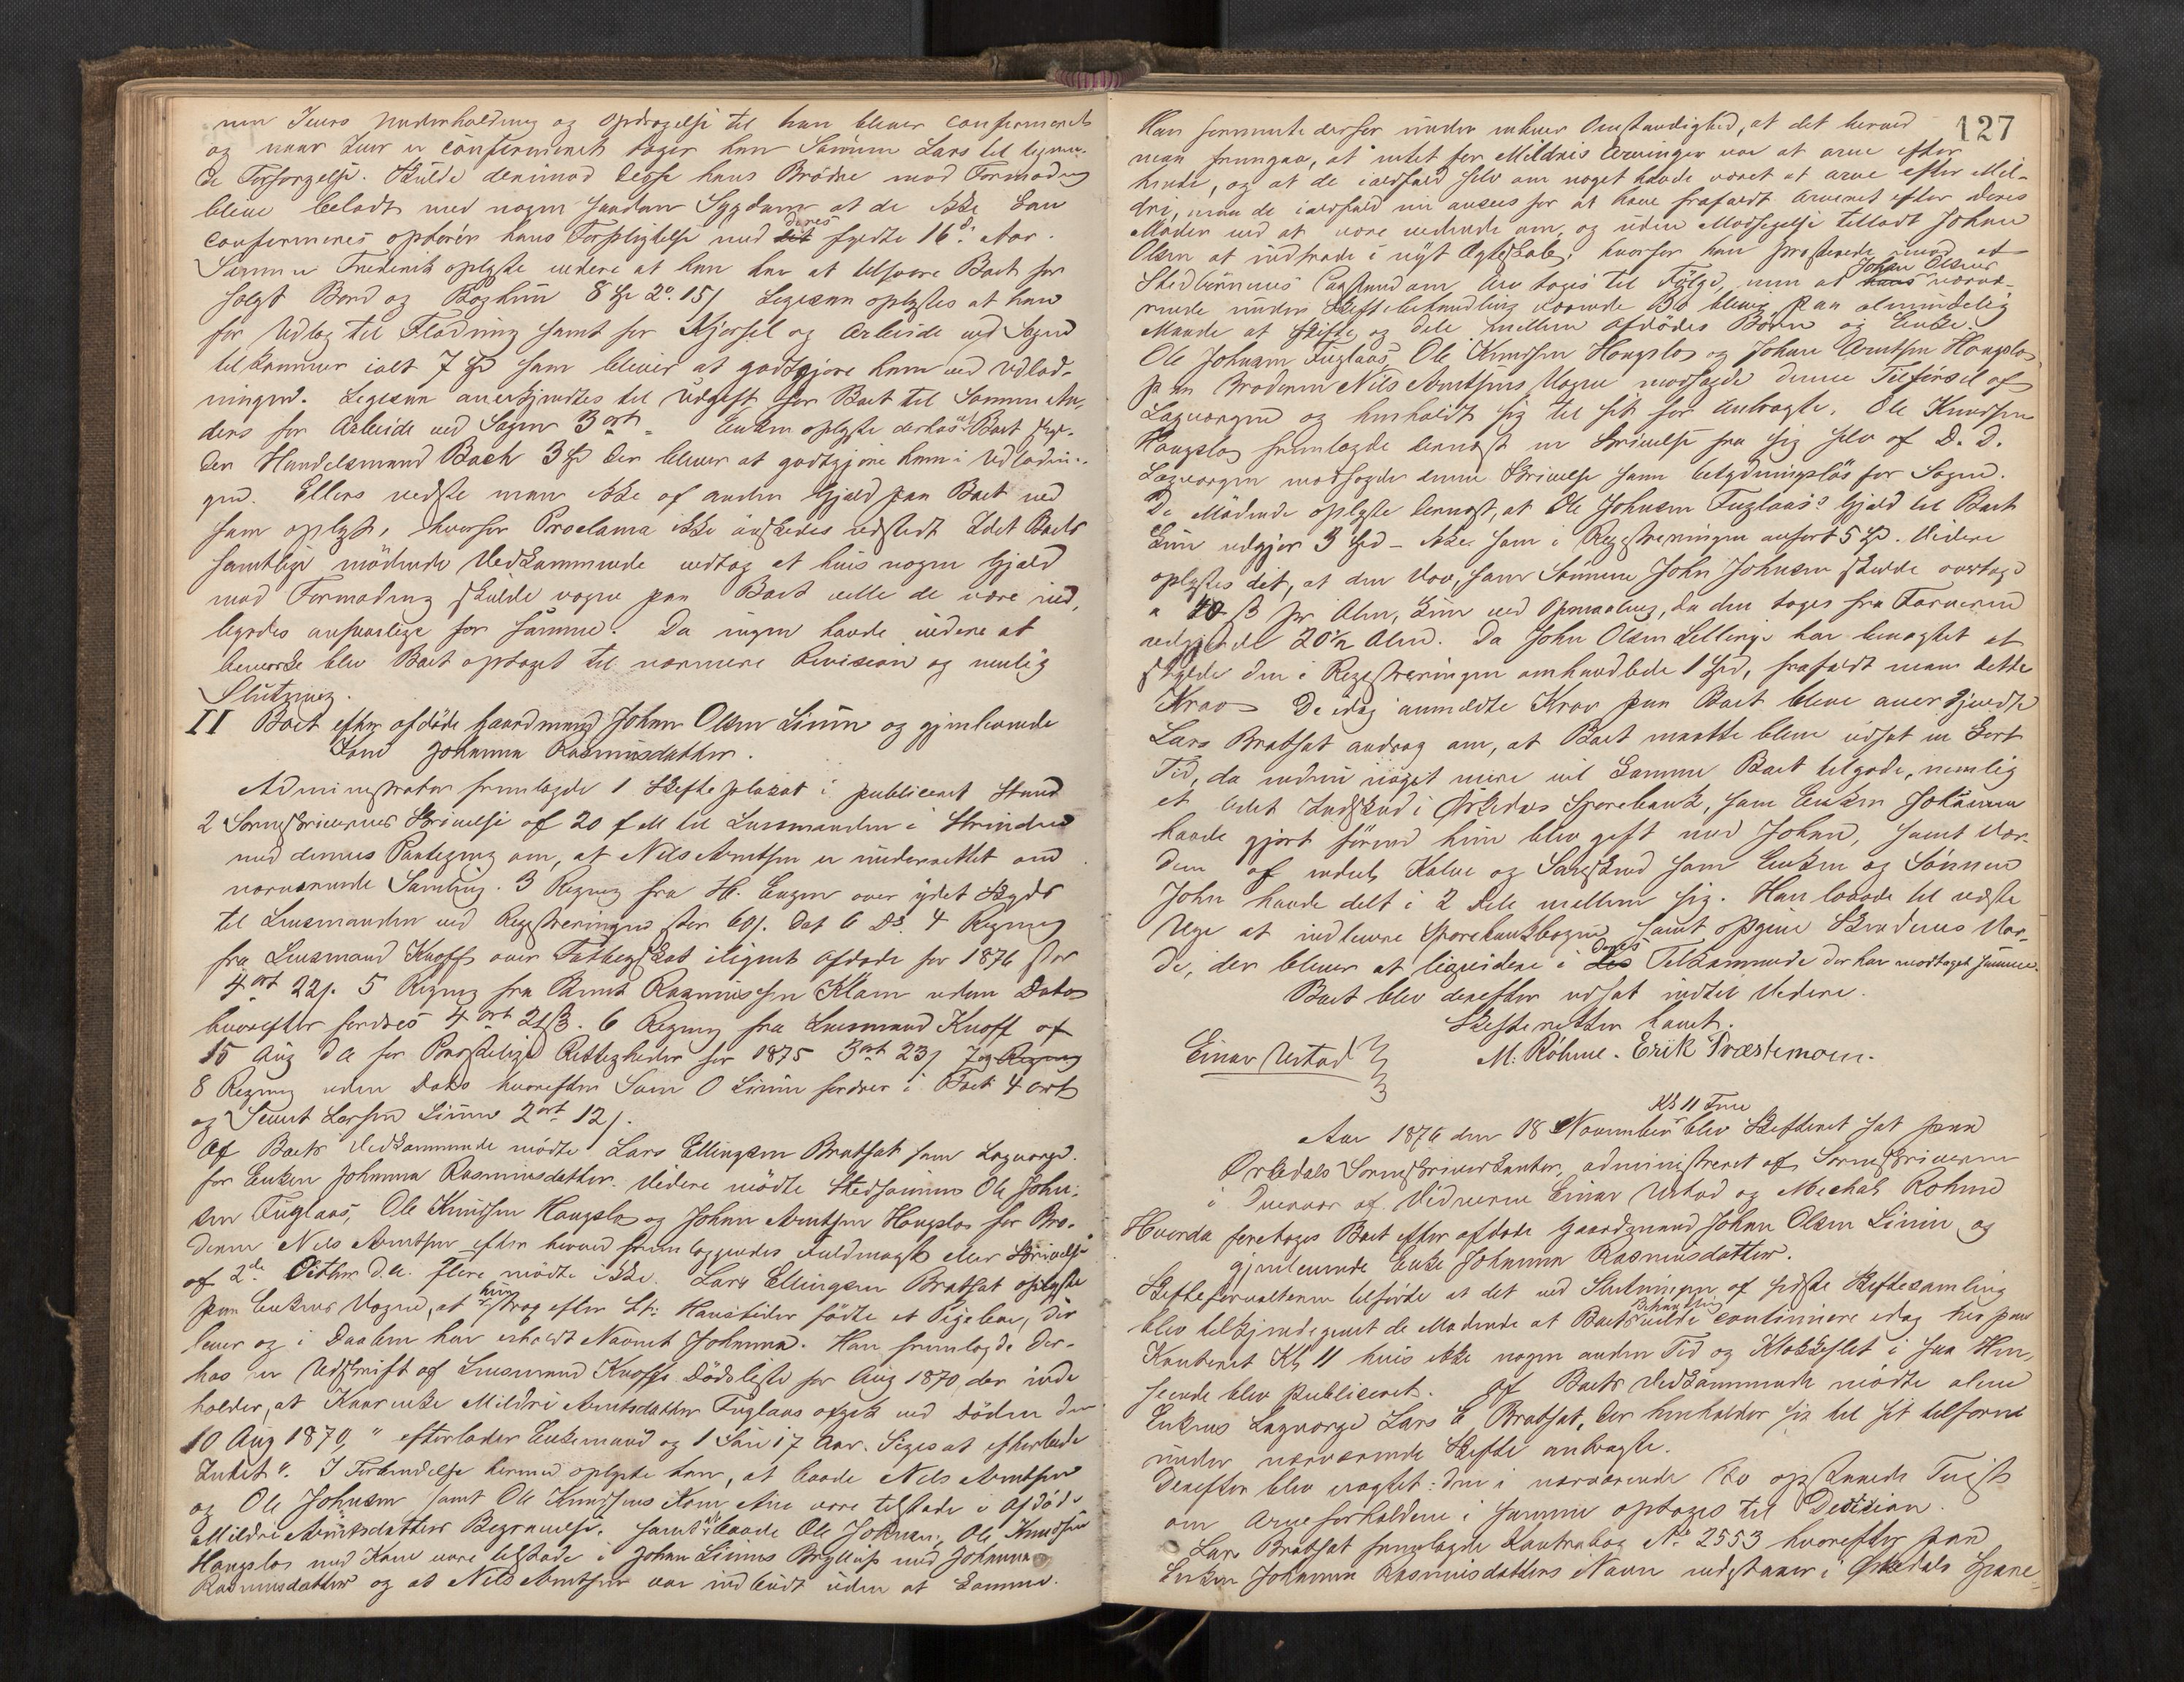 nen Jens Underholdning og Opdragelse til han bliver confirmeret
og naar Jens er confirmeret tager han Sønnen Lars til lignen-
de Forsørgelse. Skulde derimod begge hans Brødre mod Formodning
blive beladt med nogen saadan Sygdom at de ikke kan
confirmeres ophører hans Forpligtelse med det deres fyldte 16de Aar.
Sønnen Frederik oplyste videre at han har at tilsvare Boet for
solgt Bord og Boghus 8 Spd 2 o. 15 s. Ligesom oplystes at han
for Udlæg til Flødning samt for Kjørsel og Arbeide ved Sagen
tilkommer ialt 7 Spd som bliver at godtgjøre ham ved Udlod-
ningen. Ligesaa anerkjendtes til Udgift for Boet til Sønnen An-
ders for Arbeide ved Sagen 3 ort. Enken oplyste derhos at Boet skyl-
der Handelsmand Bach 3 Spd der bliver at godtgjøre ham i Udlodnin-
gen. Ellers vidste man ikke af anden Gjæld paa Boet end
som oplyst, hvorfor Proclama ikke ønskedes udstedt Idet Boets
samtlige mødende Vedkommende vedtog at hvis nogen Gjæld
mod Formodning skulde vogne paa Boet ville de være ind-
byrdes ansvarlige for samme. Da ingen havde videre at
bemærke blev Boet optaget til nærmere Revision og mulig
Slutning.
II Boet efter afdøde Gaardmand Johan Olsen Linum og gjenlevende
Kone Johanna Rasmusdatter.
Administrator fremlagde 1 Skifteplakat i publiceret Stand
2 Sorenskriverens Skrivelse af 20 f M til Lensmanden i Strinden
med dennes Paategning om, at Nils Arntsen er underrettet om
nærværende Samling. 3 Regning fra H. Eugen over ydet Skyds
til Lensmanden ved Registreringen stor 60 s. Dat 6 Ds. 4 Regning
fra Lensmand Knoff over Fattigskat ilignet Afdøde for 1876 stor
4 ort 22 s. 5 Regning fra Arnt Rasmussen Klam uden Dato
hvorefter fordres 4 ort 21 ß. 6 Regning fra Lensmand Knoff af
15 Aug d A for Præstelige Rettigheder for 1875 3 ort 23 s 7 og Regning
8 Regning uden Dato hvorefter Sivn O Linum fordrer i Boet 4 ort
og Sivert Larsen Linum 2 ort 12 s.
Af Boets Vedkommende mødte Lars Ellingsen Bratset som Laugværge
for Enken Johanna Rasmusdatter. Videre mødte Stedsønnen Ole John-
sen Fuglaas, Ole Knudsen Haugslo og Johan Arntsen Haugslo for Bro-
deren Nils Arntsen efter herved fremlæggendes Fuldmagt eller Skrivelse
af 2de Octbr d.A. Flere mødte ikke. Lars Ellingsen Bratset oplyste
paa Enkens Vegne, at hun strax efter St: Hanstider fødte et Pigebarn, der
lever og i Daaben har erholdt Navnet Johanna. Han fremlagde der-
hos en Udskrift af Lensmand Knoffs Dødsliste for Aug 1870 der inde
holder, at Kaarenke Mildri Arntsdatter Fuglaas afgik ved Døden den
10 Aug 1870, "efterlader Enkemand og 1 Søn 17 Aar. Siges at efterlade
Intet". I Forbindelse hermed oplyste han, at baade Nils Arntsen
og Ole Johnsen samt Ole Knudsens Kone Ane vare tilstede i Afdøde
Mildri Arntsdatters Begravelse. samt at baade Ole Johnsen, Ole Knudsen
Haugslo med Kone vare tilstede i Johan Linums Bryllup med Johanna
Rasmusdatter og at Nils Arntsen var indbudt uden at komme.
127
Han formente derfor under enhver Omstændighed, at det herved
maa fremgaa, at intet for Mildris Arvinger var at arve efter
hende, og at de ialfald selv om noget havde været at arve efter Mil-
dri, maa de ialfald nu ansees for at have frafaldt Arveret efter deres
Moder ved at være vidende om, og uden Modsigelse tilladt Johan
Olsen at indtræde i nyt Ægteskab, hvorfor han protesterede mod at
Stedbørnenes Paastand om Arv toges til Følge, men at hans Johan Olsens nærvæ-
rende under Skiftebehandling værende Bo bliver paa almindelig
Maade at skifte og dele mellem Afdødes Børn og Enke.
Ole Johnsen Fuglaas, Ole Knudsen Haugslo og Johan Arntsen Haugslo
paa Broderen Nils Arntsens Vegne modsagde denne Tilførsel af
Laugværgen og henholdt sig til sit før Anbragte. Ole Knudsen
Haugslo fremlagde dernæst en Skrivelse fra sig selv af D. D.
Laugværgen modsagde denne Skrivelse som betydningsløs for Sagen.
De Mødende oplyste dernæst, at Ole Johnsen Fuglaas's Gjæld til Boet
kun udgjør 3 Spd – ikke som i Registreringen anført 5 Spd. Videre
oplystes det, at den Vov, som Sønnen John Johnsen skulde overtage
a 40 ß pr Alen, kun ved Opmaaling, da den toges fra Farveren
udgjorde 20½ Alen. Da John Olsen Lillinge har benægtet at
skylde den i Registreringen omhandlede 1 Spd, frafaldt man dette
Krav De idag anmeldte Krav paa Boet bleve anerkjendte
Lars Bratset androg om, at Boet maatte blive udsat en kort
Tid, da endnu noget mere vil komme Boet tilgode, nemlig
et lidet Indskud i Ørkedals Sparebank, som Enken Johanna
havde gjort førend hun blev gift med Johan, samt Vær-
dien af endel Kalve og Saueskind som Enken og Sønnen
John havde delt i 2 Dele mellem sig. Han lovede til næste
Uge at indlevere Sparebankbogen samt opgive Skindenes Vær-
di, der bliver at liqvidere i des deres Tilkommende der har modtaget samme.
Boet blev derefter udsat indtil Videre.
Skifteretten hævet.
Einar Ustad M. Röhme. Erik Præstemoen.
Kl 11 Fm
Aar 1876 den 18 November blev Skifteret sat paa
Ørkedals Sorenskriverkontor, administreret af Sorenskriveren
i Overvær af Vidnerne Einar Ustad og Michal Röhme
Hvorda foretoges Boet efter afdøde Gaardmand Johan Olsen Linum og
gjenlevende Enke Johanna Rasmusdatter.
Skifteforvalteren tilførte at det ved Slutningen af sidste Skiftesamling
blev tilkjendegivet de Mødende at Boets Behandling vilde continuere idag her paa
Kontoret Kl 11 hvis ikke nogen anden Tid og Klokkeslet i saa Hen-
seende blev publiceret. Af Boets Vedkommende mødte alene
Enkens Laugværge Lars E Bratset, der henholder sig til sit tilforne
under nærværende Skifte anbragte.
Derefter blev eragtet: Den i nærværende Bo opkomne Tvist
om Arveforholdene i samme optages til Decision.
Lars Bratset fremlagde Kontrabog No 2553 hvorefter paa
Enken Johanna Rasmusdatters Navn indestaaer i Ørkedals Spare-